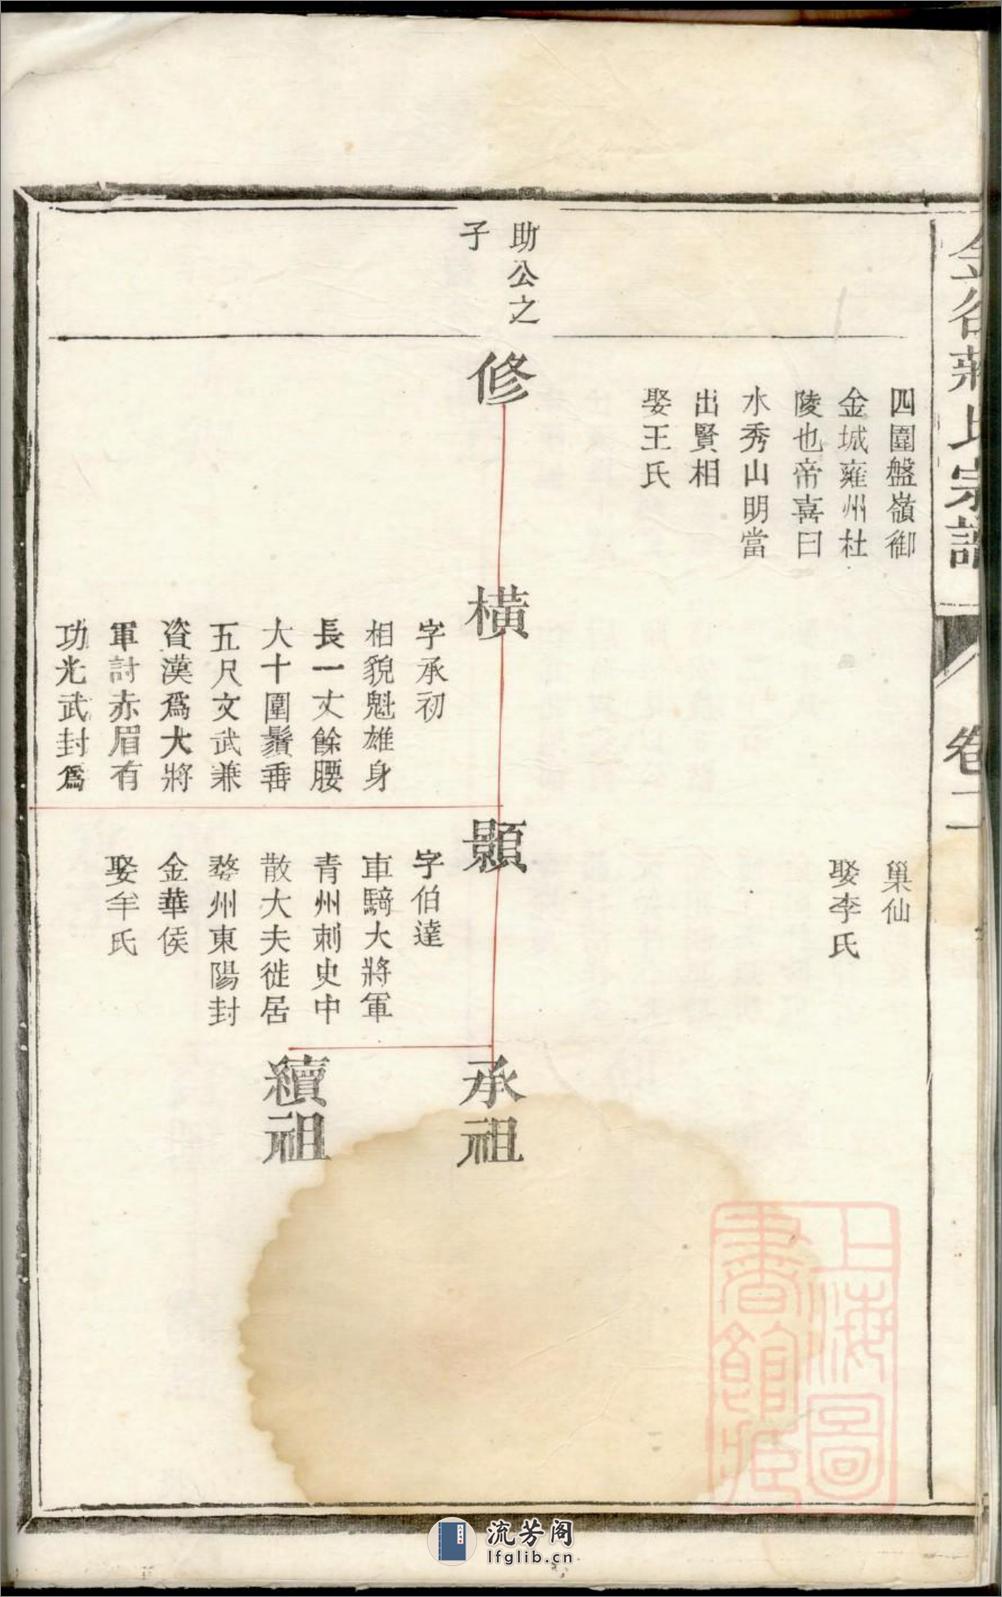 金谷蔣氏宗譜
卷二
四圍盤嶺御
金城雍州杜
陵也帝喜曰
水秀山明當
出賢相
娶王氏
巢仙
娶李氏
助公之
子
修
橫
字承初
相貌魁雄身
長一丈餘腰
大十圍鬚垂
五尺文武兼
資漢爲大將
軍討赤眉有
功光武封爲
顯
字伯達
車騎大將軍
青州刺史中
散大夫徙居
婺州東陽封
金華侯
娶牟氏
承祖
續祖
上海圖
書館藏
流芳阁
lfglib.cn